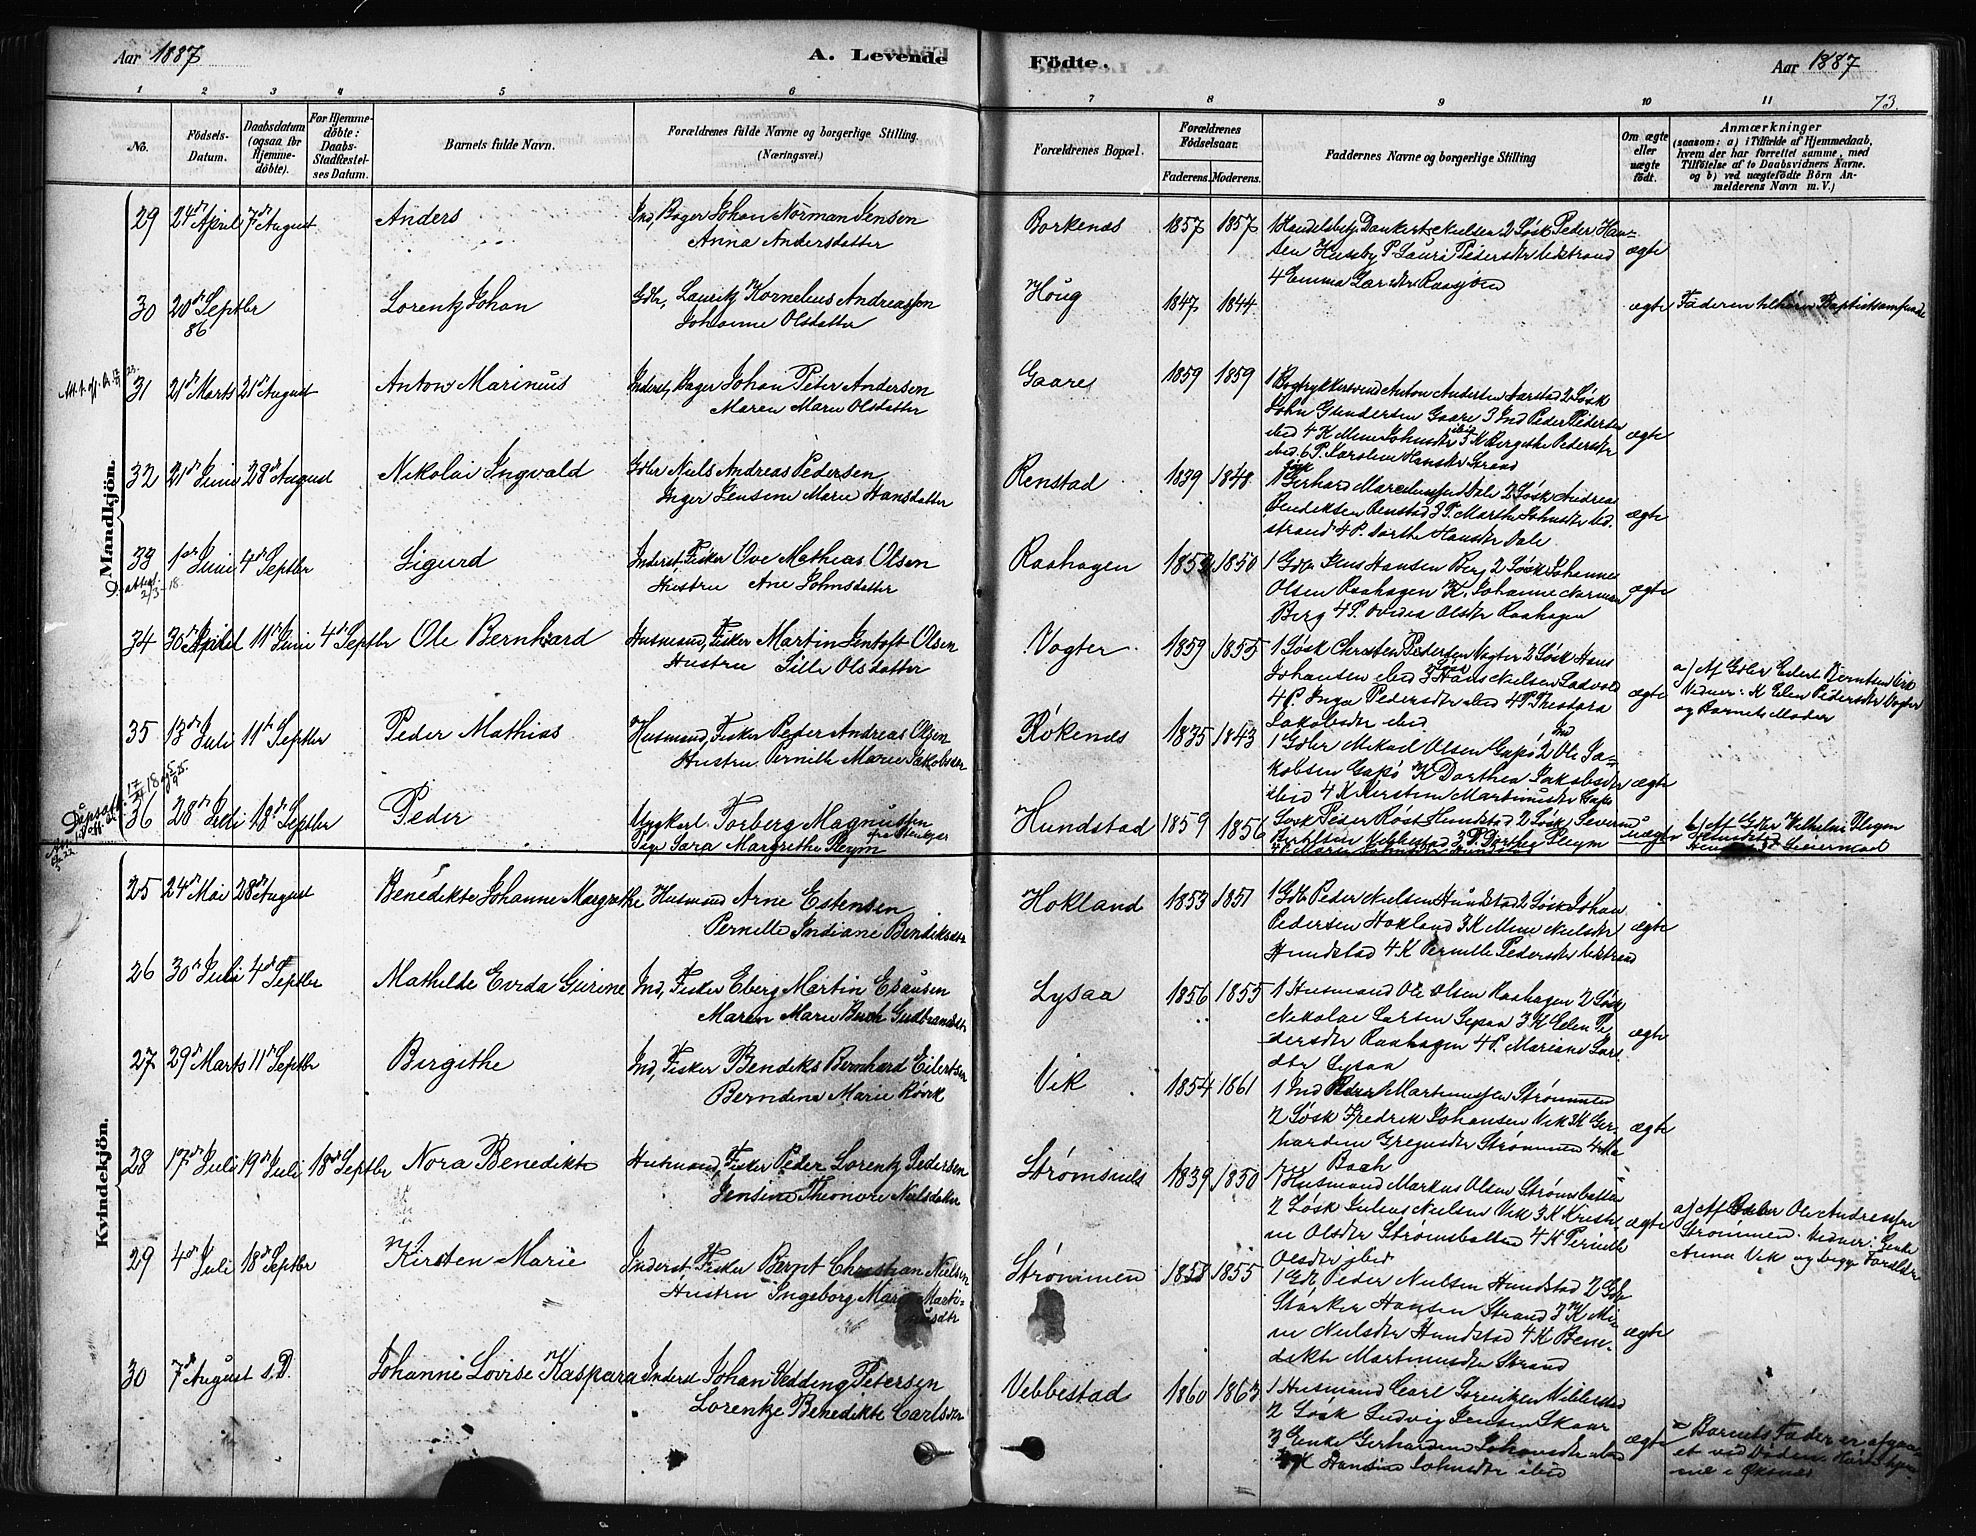 Aar 1887
A. Levende
Födte.
Aar 1887
73.
1 2 3 4 5 6 7 8 9 10 11
No.
Födsels-
Datum.
Daabsdatum
(ogsaa for
Hjemme-
döbte).
For Hjemme-
döbte:
Daabs-
Stadfæstel-
ses Datum.
Barnets fulde Navn.
Forældrenes fulde Navne og borgerlige Stilling.
(Næringsvei.)
Forældrenes Bopæl.
Forældrenes
Födselsaar.
Faderens. Moderens.
Faddernes Navne og borgerlige Stilling
Om ægte
eller
uægte
födt.
Anmærkninger
(saasom: a) i Tilfælde af Hjemmedaab,
hvem der har forrettet samme, med
Tilföielse af to Daabsvidners Navne.
og b) ved uægtefödte Börn An-
melderens Navn m. V.)
Mandkjön.
29 24de April 7de August Anders Ind, Bager Johan Norman Jensen
Anna Andersdatter
Borkenæs 1857 1857 1 Handelsbetj Dankert Nielsen 2 Løsk Peder Han-
sen Husby P Lauri Pedersdtr
4 Emma
ægte
30 20de Septbr
86
Lorentz Johan Gdbr, Lauritz Kornelius Andreassen
Johanne Olsdatter
Houg 1847 1844 ægte Faderen tilhører Baptistsamfundet
31 21de Marts 21de August Anton Marinus Inderst, Bager Johan Peter Andersen
Maren Marie Olsdatter
Gaare 1859 1859 1 Bogtrykkersvend Anton Andersen 2 Løsk
John Gundersen Gaare 3 Ind Peder Pedersen
ibid 4 K Mene Johnsdtr ibid 5 K Bergithe Pedersdtr
ibid 6 P. Karoline Hansdtr Strand
ægte
32 21de Juni 28de August Nikolai Ingvald Gdbr Niels Andreas Pedersen
Inger Jensine Marie Hansdatter
Renstad 1839 1848 1 Løsk Gerhard Dale 2 Løsk Andreas
Bendiksen Renstad 3 P. Marthe Johnsdtr
strand 4 P. Dorthe Hansdtr Dale
ægte
33 1ste Juni 4de Septbr Sigurd Inderst Fisker Ove Mathias Olsen
Hustru Ane Johnsdatter
Raahagen 1850 1 Gdbr Jens Hansen Berg 2 Løsk Johannes
Olsen Raahagen K. Johanne Norman
Berg 4 P. Ovidia Olsdtr Raahagen
ægte
34 30te April 11te Juni 4de Septbr Ole Bernhard Husmand, Fisker Martin Gentoft Olsen
Hustru Sille Olsdatter
Vogter 1859 1855 1 Løsk Christen Pedersen Vogter 2 Løsk Hans
Johansen ibid 3 Løsk Hans Nielsen
4 P. Inga Pedersdtr ibid 4 P Theodora
Jakobsdtr ibid
ægte
a) Af Gdbr Edert Berntsen Vik
Vidner: K Elen Pedersdtr Vogter
og Barnets Moder
35 13de Juli 11te Septbr Peder Mathias Husmand, Fisker Peder Andreas Olsen
Hustru Pernille Marie Jakobsdtr
Røkenæs 1835 1843 1 Gdbr Mikael Olsen Gapø 2 Ind Ole Ja-
kobsen Gapø K Dorthea Jakobsdtr
ibid 4 K Kirstine Martinusdtr Gapø
ægte
36 28de Juli 18de Septbr Peder Ungkarl Torberg Magnussen
Pige Sara Margrethe Pleym
Hundstad 1859 1856 Løsk Peder Røst Hundstad 2 Løsk Severin
Vebbestad 3 P. Dorthea Pleym
uægte
b) Af Gdbr Vilhelm Pleym
Hundstad
Kvindekjön.
25 24de Mai 28de August Benedikte Johanne Margrethe Husmand Arne Estensen
Pernille Indiane Bendiksdtr
Hokland 1853 1851 1 Gdb Peder Nielsen Hundstad 2 Løsk Johan
Pedersen Hokland 3 K Mene Nielsdtr
Hundstad 4 K Pernille Pedersdtr
ægte
26 30te Juli 4de Septbr Mathilde Evida Gurine Ind, Fisker Eberg Martin Esausen
Maren Marie Buch Gudbrandsdtr
Lysaa 1856 1855 1 Husmand Ole Olsen Raahagen 2 Løsk
Nikolai Larsen Lysaa 3 K Elen Pe
dersdtr Raahagen 4 P. Mariane Lars
dtr Lysaa
ægte
27 29de Marts 11te Septbr Birgithe Ind, Fisker Bendiks Bernhard Eilertsen
Berndine Marie Røvik
Vik 1854 1861 1 Ind Peder Martinussen Strømmen
2 Løsk Fredrik Johansen Vik 3 K Ger-
hardine Gregusdtr Strømmen 4 Ma
Bach
ægte
28 17de Juli 19de Juli 18de Septbr Nora Benedikte Husmand, Fisker Peder Lorentz Pedersen
Jensine Theonore Nielsdatter
Strømsnæs 1839 1850 1 Husmand Markus Olsen Strømsbotten
2 Løsk Julius Nielsen Vik 3 K Kristi
ne Olsdtr Strømsbotten 4 K Pernille
Olsdtr ibid
ægte
a) Af Gdbr Ole Andreassen
Strømmen. Vidner: Enke
Anna Vik og begge Forældre
29 4de Juli 18de Septbr Kirsten Marie Inderst Fisker Bernt Christian Nielsen
Hustru Ingeborg Marie Marti-
nusdtr
Strømmen 1855 1 Gdb Peder Nielsen Hundstad 2 Gdb
Stærker Hansen Strand 3 K Mi
ne Nielsdtr Hundstad 4 K Bene-
dikte Martinusdtr Strand
ægte
30 7de August s. D. Johanne Lovise Kaspara Inderst Johan Gedding Petersen
Lorentze Benedikte Carlsdtr
Vebbestad 1860 1863 1 Husmand Carl Lorentzen Vebbestad
2 Løsk Ludvig Jensen Skaar
3 Enke Gerhardine Johansdtr ibid
K Hansine Johnsdtr ibid
ægte
Barnets Fader er afgaa-
et ved Døden.
i Øksnæs